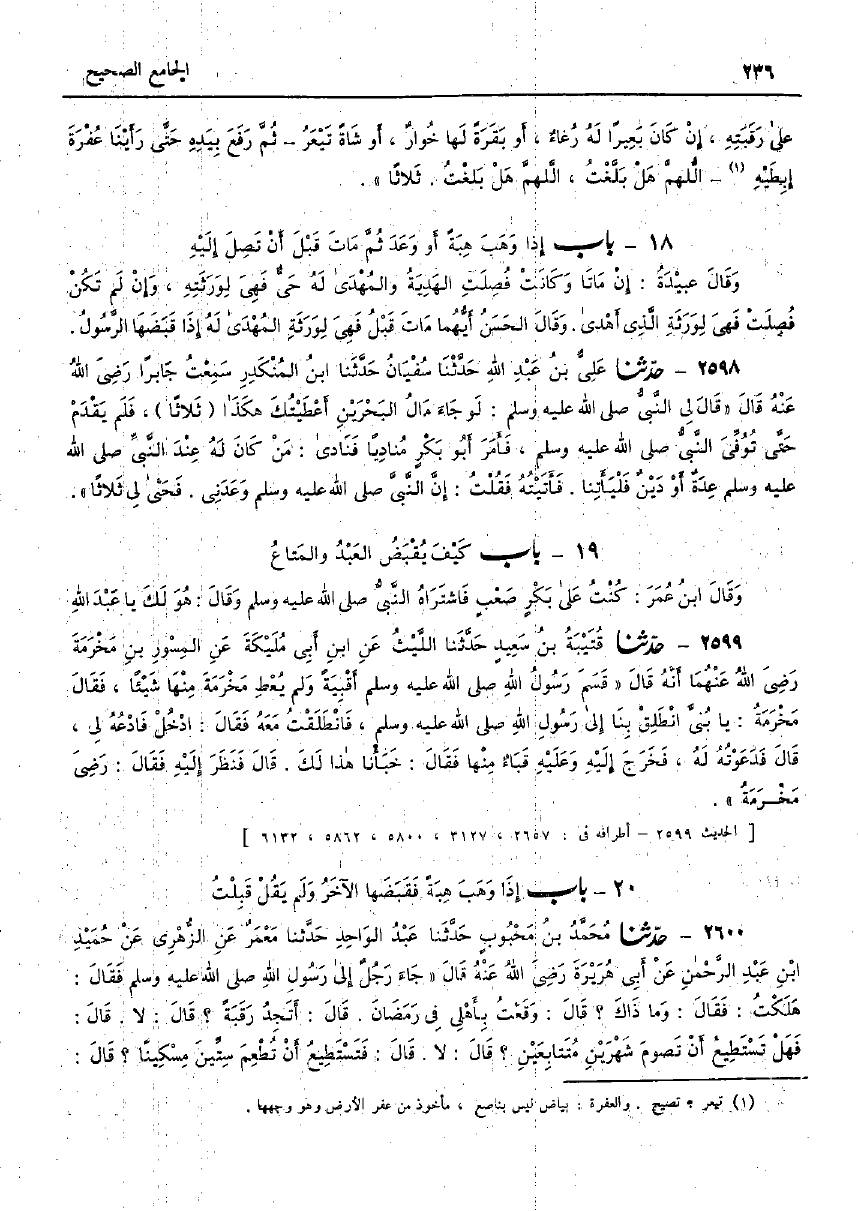 ٢٣٦ الجامع الصحيح
على رَقَبَتِهِ ، إنْ كَانَ بَعِيرًا لَهُ رُغاءٌ ، أو بَقَرَةً لَها خُوارٌ ، أو شَاةً تَيْعَرُ – ثُمَّ رَفَعَ بِيَدِهِ حَتَّى رَأَيْنَا عُفْرَةَ
إبطَيْهِ (١) – اللَّهمَّ هَلْ بَلَّغْتُ ، اللَّهمَّ هَلْ بَلغْتُ . ثَلاثًا » .
١٨ – باب إذَا وَهَبَ هِبَةً أو وَعَدَ ثُمَّ مَاتَ قَبْلَ أَنْ تَصِلَ إلَيْهِ
وَقَالَ عبِيْدَةُ : إنْ مَاتَا وَكَانَتْ فُصِلَتِ الهَدِيَةُ والمُهْدَىٰ لَهُ حَىٌّ فَهِىَ لِوَرَثَتِهِ ، وَإنْ لَم تَكُنْ
فُصِلَتْ فَهِىَ لِوَرَثَةِ الَّذِى أَهْدىٰ . وَقَالَ الحَسَنُ أيُّهما مَاتَ قَبْلُ فَهِىَ لِوَرَثَةِ المُهْدَىٰ لَهُ إذَا قَبَضَها الرَّسُولُ .
٢٥٩٨ – حدّثنا عَلِىُّ بنُ عَبْدِ اللهِ حَدَّثَنَا سُفْيَانُ حَدَّثَنَا ابنُ المُنْكَدِرِ سَمِعْتُ جَابِرًا رَضِىَ اللهُ
عَنْهُ قَالَ « قَالَ لِى النَّبىُّ صلى الله عليه وسلم : لَو جَاءَ مَالُ البَحْرَيْنِ أعْطَيْتُكَ هكَذَا ( ثَلاثًا ) ، فَلَم يَقْدَمْ
حَتَّى تُوُفِّىَ النَّبىُّ صلى الله عليه وسلم ، فَأمَرَ أبُو بَكْرٍ مُنادِيًا فَنَادىٰ : مَنْ كَانَ لَهُ عِنْدَ النَّبىِّ صلى الله
عليه وسلم عِدَةٌ أوْ دَيْنٌ فَلْيَأتِنا . فَأتَيْتُهُ فَقُلْتُ : إنَّ النَّبىَّ صلى الله عليه وسلم وَعَدَنِى . فَحَثىٰ لِى ثَلاثًا » .
١٩ – باب كَيْفَ يُقْبَضُ العَبْدُ والمَتاعُ
وَقَالَ ابنُ عُمَرَ : كُنْتُ عَلىٰ بَكْرٍ صَعْبٍ فَاشتَرَاهُ النَّبىُّ صلى الله عليه وسلم وَقَالَ : هُوَ لَكَ يا عَبْدَ اللهِ
٢٥٩٩ – حدّثنا قُتَيْبَةُ بنُ سَعِيدٍ حَدَّثَنا اللَّيْثُ عَنِ ابنِ أبِى مُلَيكَةَ عَنِ المِسْوَرِ بنِ مَخْرَمَةَ
رَضِىَ اللهُ عَنْهُما أنَّهُ قَالَ « قَسَمَ رَسُولُ اللهِ صلى الله عليه وسلم أقْبِيَةً ولم يُعْطِ مَخْرَمَةَ مِنْهَا شَيْئًا ، فَقَالَ
مَخْرَمَةُ : يا بُنَىَّ انْطَلِقْ بِنَا إلىٰ رَسُولِ اللهِ صلى الله عليه وسلم ، فَانْطَلَقْتُ مَعَهُ فَقَالَ : ادْخُلْ فَادْعُهُ لِى ،
قَالَ فَدَعَوْتُهُ لَهُ ، فَخَرَجَ إلَيْهِ وَعَلَيْهِ قَبَاءٌ مِنْها فَقَالَ : خَبَأْنا هٰذا لَكَ . قَالَ فَنَظَرَ إلَيْهِ فَقَالَ : رَضِىَ
مَخْـرَمَةُ » .
[ الحديث ٢٥٩٩ – أطرافه فى : ٢٦٥٧ ، ٣١٢٧ ، ٥٨٠٠ ، ٥٨٦٢ ، ٦١٣٢ ]
٢٠ – باب إذَا وَهَبَ هِبَةً فَقَبَضَها الآخَرُ وَلَم يَقُلْ قَبِلْتُ
٢٦٠٠ – حدّثنا مُحَمَّدُ بنُ مَحْبُوبٍ حَدَّثَنا عَبْدُ الوَاحِدِ حَدَّثَنا مَعْمَرٌ عَنِ الزُّهْرِى عَنْ حُمَيْدِ
ابْنِ عَبْدِ الرَّحْمٰنِ عَنْ أَبِى هُرَيْرَةَ رَضِىَ اللهُ عَنْهُ قَالَ « جَاءَ رَجُلٌ إلىٰ رَسُولِ اللهِ صلى الله عليه وسلم فَقَالَ :
هَلَكْتُ : فَقَالَ : وَما ذَاكَ ؟ قَالَ : وَقَعْتُ بِأَهْلِى فى رَمَضَانَ . قَالَ : أتَجِدُ رَقَبَةً ؟ قَالَ : لا . قَالَ :
فَهَلْ تَسْتَطِيعُ أنْ تَصومَ شَهْرَيْنِ مُتَتابِعَيْنِ ؟ قَالَ : لا . قَالَ : فَتَسْتَطِيعُ أنْ تُطْعِمَ سِتِّينَ مِسْكِينًا ؟ قَالَ :
(١) تيعر ؟ تصيح . والعفرة : بياض ليس بناصع ، مأخوذ من عفر الأرض وهو وجهها .